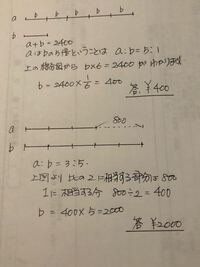 b b b b b
a
b
a+b=2400
aはbの5倍ということは a:b=5:1
上の線分図から b×6=2400 がわかります
b=2400×1/6=400
答 ¥400
800
a
b
a:b=3:5.
上図より 比の2に相当する部分は800
1に相当する分 800÷2=400
b=400×5=2000
答 ¥2000